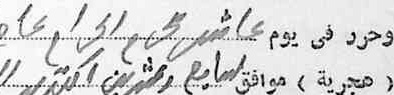 وحرر فى يوم عاشر محرم الحرام عام
( هجرية ) موافق سابع وعشرين اكتوبر